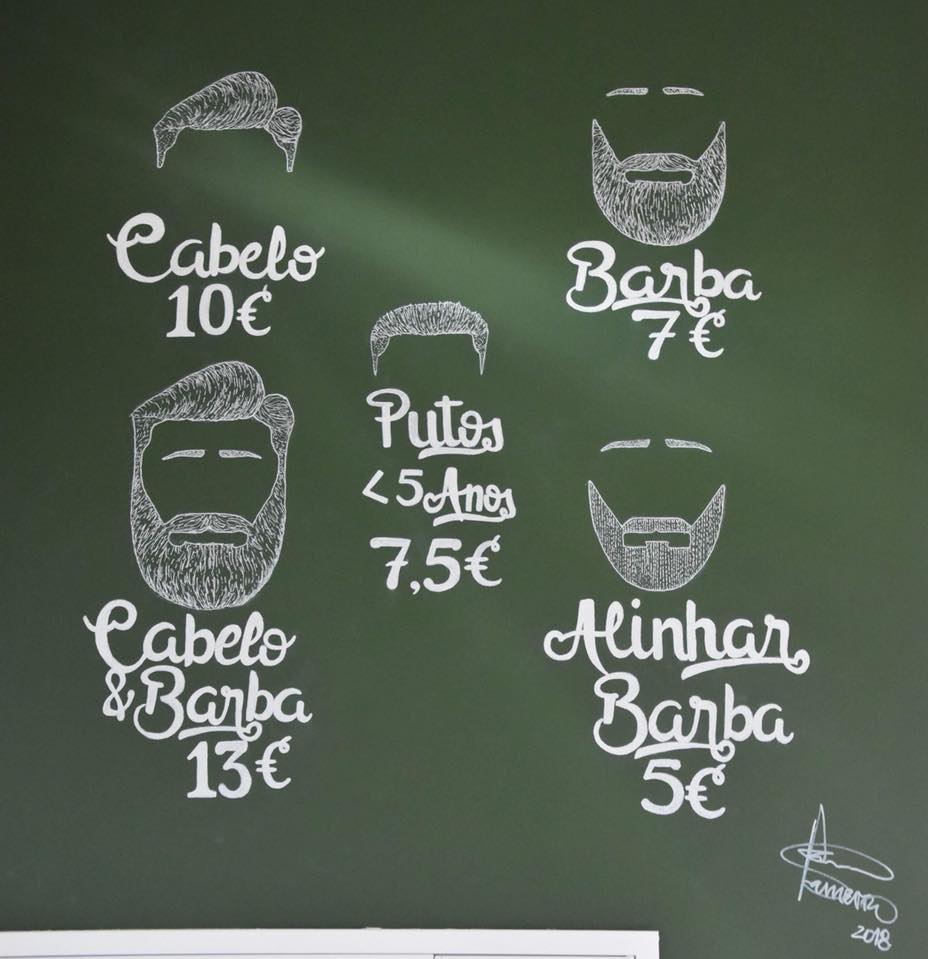 Cabelo
10€
Barba
7€
Putos
<5 Anos
7,5€
Cabelo
& Barba
13€
Alinhar
Barba
5€
2018